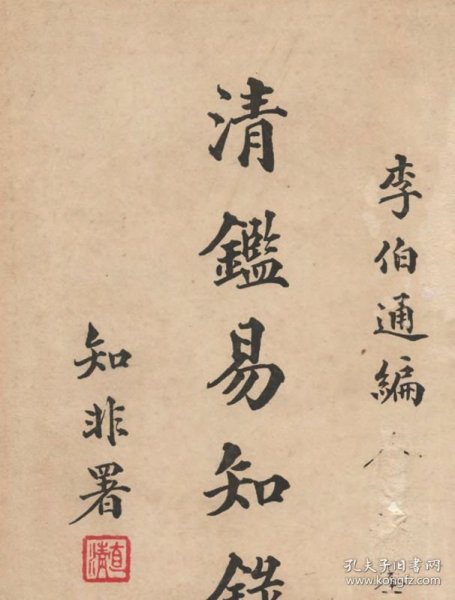 李伯通編
清鑑易知錄
知非署
直清
孔夫子旧书网
www.kongfz.com